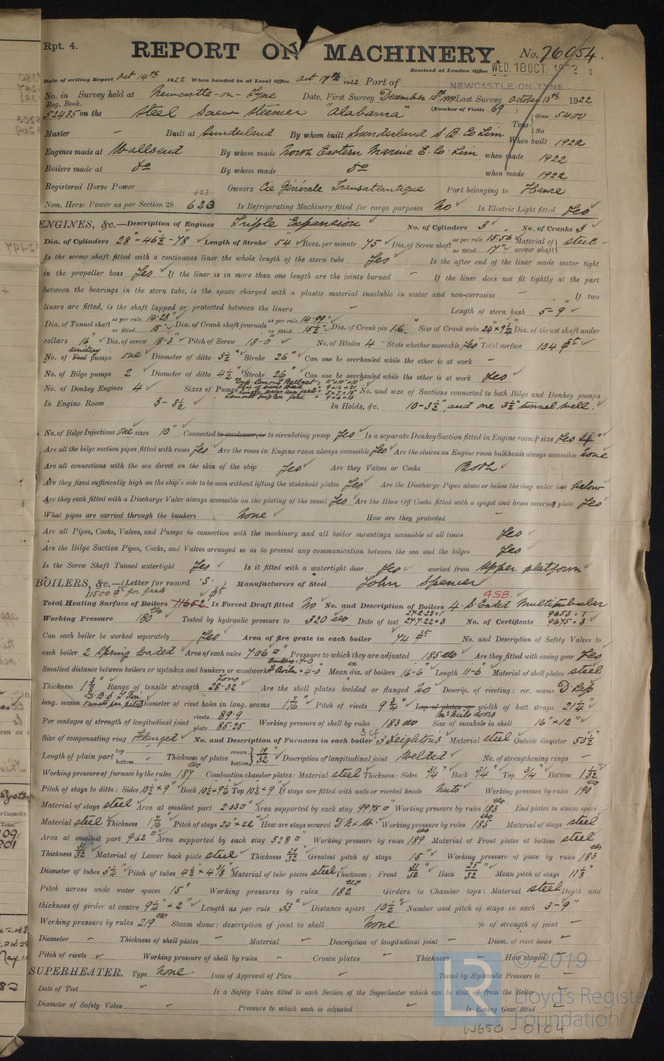 Rpt. 4.
REPORT ON MACHINERY.
No. 76054.
Date of writing Report Oct 14th 1922 When handed in at Local Office Oct 17th 1922 Port of
Received at London Office WED. 18 OCT 1922
NEWCASTLE-ON-TYNE
No. in Survey held at Newcastle-on-Tyne Date, First Survey December Last Survey October 13th 1922
Reg. Book.
52435 on the Steel Screw Steamer "Alabama" (Number of Visits 69)
Tons Gross 5400 Net
Master Built at Sunderland By whom built Sunderland S. B. Co Lim When built 1922
Engines made at Wallsend By whom made North Eastern Marine E. Co Lim when made 1922
Boilers made at Do By whom made Do when made 1922
Registered Horse Power Owners Cie Générale Transatlantique Port belonging to Havre
Nom. Horse Power as per Section 28 623 Is Refrigerating Machinery fitted for cargo purposes No Is Electric Light fitted Yes
ENGINES, &c.—Description of Engines Triple Expansion No. of Cylinders 3 No. of Cranks 3
Dia. of Cylinders 28"-46½"-78" Length of Stroke 54 Revs. per minute 75 Dia. of Screw shaft as per rule 15.56 as fitted 17" Material of screw shaft steel
Is the screw shaft fitted with a continuous liner the whole length of the stern tube Yes Is the after end of the liner made water tight
in the propeller boss Yes If the liner is in more than one length are the joints burned — If the liner does not fit tightly at the part
between the bearings in the stern tube, is the space charged with a plastic material insoluble in water and non-corrosive — If two
liners are fitted, is the shaft lapped or protected between the liners — Length of stern bush 5-9"
Dia. of Tunnel shaft as per rule 14.28" as fitted 15" Dia. of Crank shaft journals as per rule 14.99" as fitted 15½" Dia. of Crank pin 16" Size of Crank webs 24×9½ Dia. of thrust shaft under
collars 16" Dia. of screw 18-3" Pitch of Screw 18-0" No. of Blades 4 State whether moveable Yes Total surface 104
No. of Feed pumps one Diameter of ditto 3½" Stroke 26" Can one be overhauled while the other is at work —
No. of Bilge pumps 2 Diameter of ditto 4½" Stroke 26" Can one be overhauled while the other is at work Yes
No. of Donkey Engines 4 Sizes of Pumps No. and size of Suctions connected to both Bilge and Donkey pumps
In Engine Room 3-3½" In Holds, &c. 10-3½", and one 3½" tunnel well.
No. of Bilge Injections one sizes 10" Connected to condenser, or to circulating pump Yes Is a separate Donkey Suction fitted in Engine room & size Yes 4"
Are all the bilge suction pipes fitted with roses Yes Are the roses in Engine room always accessible Yes Are the sluices on Engine room bulkheads always accessible none
Are all connections with the sea direct on the skin of the ship Yes Are they Valves or Cocks Both
Are they fixed sufficiently high on the ship's side to be seen without lifting the stokehold plates Yes Are the Discharge Pipes above or below the deep water line below
Are they each fitted with a Discharge Valve always accessible on the plating of the vessel Yes Are the Blow Off Cocks fitted with a spigot and brass covering plate Yes
What pipes are carried through the bunkers None How are they protected —
Are all Pipes, Cocks, Valves, and Pumps in connection with the machinery and all boiler mountings accessible at all times Yes
Are the Bilge Suction Pipes, Cocks, and Valves arranged so as to prevent any communication between the sea and the bilges Yes
Is the Screw Shaft Tunnel watertight Yes Is it fitted with a watertight door Yes worked from Upper platform
BOILERS, &c.—(Letter for record S.) Manufacturers of Steel John Spencer
4SB
Total Heating Surface of Boilers 11652 Is Forced Draft fitted No No. and Description of Boilers 4 S. Ended Multitubular
Working Pressure 180 Tested by hydraulic pressure to 320 Date of test No. of Certificate
Can each boiler be worked separately Yes Area of fire grate in each boiler 74 No. and Description of Safety Valves to
each boiler 2 Spring loaded Area of each valve 7.06 Pressure to which they are adjusted 185 Are they fitted with easing gear Yes
Smallest distance between boilers or uptakes and bunkers or woodwork Mean dia. of boilers 16-6" Length 11-6" Material of shell plates steel
Thickness Range of tensile strength 28-32 Are the shell plates welded or flanged no Descrip. of riveting: cir. seams D. Lap
long. seams Diameter of rivet holes in long. seams Pitch of rivets Lap of plates or width of butt straps 21½"
Per centages of strength of longitudinal joint rivets 89.9 plate 85.25 Working pressure of shell by rules 183 Size of manhole in shell 16"×12"
Size of compensating ring flanged No. and Description of Furnaces in each boiler 3 Deightons Material steel Outside diameter 50½"
Length of plain part top bottom Thickness of plates crown bottom Description of longitudinal joint Welded No. of strengthening rings —
Working pressure of furnace by the rules 187 Combustion chamber plates: Material steel Thickness: Sides ¾" Back ¾" Top ¾" Bottom
Pitch of stays to ditto: Sides 10½×9" Back Top 10½×9" If stays are fitted with nuts or riveted heads nuts Working pressure by rules 190
Material of stays steel Area at smallest part 2.030" Area supported by each stay 99.75 Working pressure by rules 183 End plates in steam space:
Material steel Thickness Pitch of stays 24×22" How are stays secured Working pressure by rules 185 Material of stays steel
Area at smallest part 9.62" Area supported by each stay 528" Working pressure by rules 189 Material of Front plates at bottom steel
Thickness Material of Lower back plate steel Thickness Greatest pitch of stays 15" Working pressure of plate by rules 183
Diameter of tubes 3½" Pitch of tubes Material of tube plates steel Thickness: Front Back Mean pitch of stays
Pitch across wide water spaces 15" Working pressures by rules 182 Girders to Chamber tops: Material steel Depth and
thickness of girder at centre 9½×2" Length as per rule 33" Distance apart 10½" Number and pitch of stays in each 3-9"
Working pressure by rules 219 Steam dome: description of joint to shell None % of strength of joint —
Diameter — Thickness of shell plates — Material — Description of longitudinal joint — Diam. of rivet holes —
Pitch of rivets — Working pressure of shell by rules — Crown plates — Thickness — How stayed —
SUPERHEATER. Type None Date of Approval of Plan — Tested by Hydraulic Pressure to —
Date of Test — Is a Safety Valve fitted to each Section of the Superheater which can be shut off from the Boiler —
Diameter of Safety Valve — Pressure to which each is adjusted — Is Easing Gear fitted —
© 2019
Lloyd's Register
Foundation
W650-0104